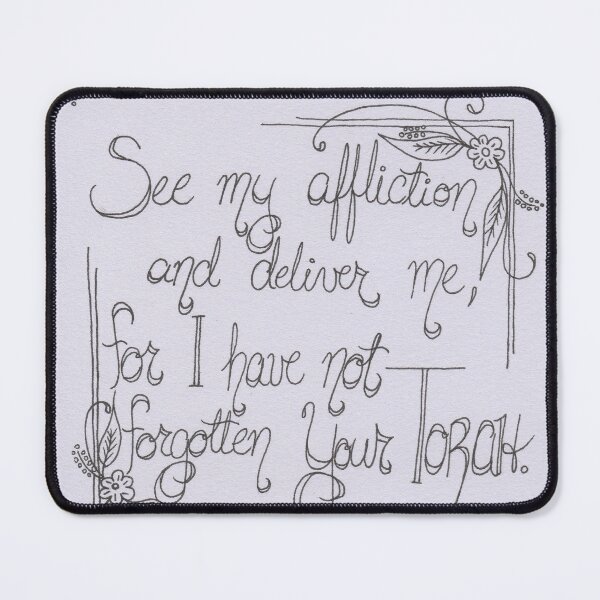 See my affliction
and deliver me,
for I have not
forgotten Your TORAH.